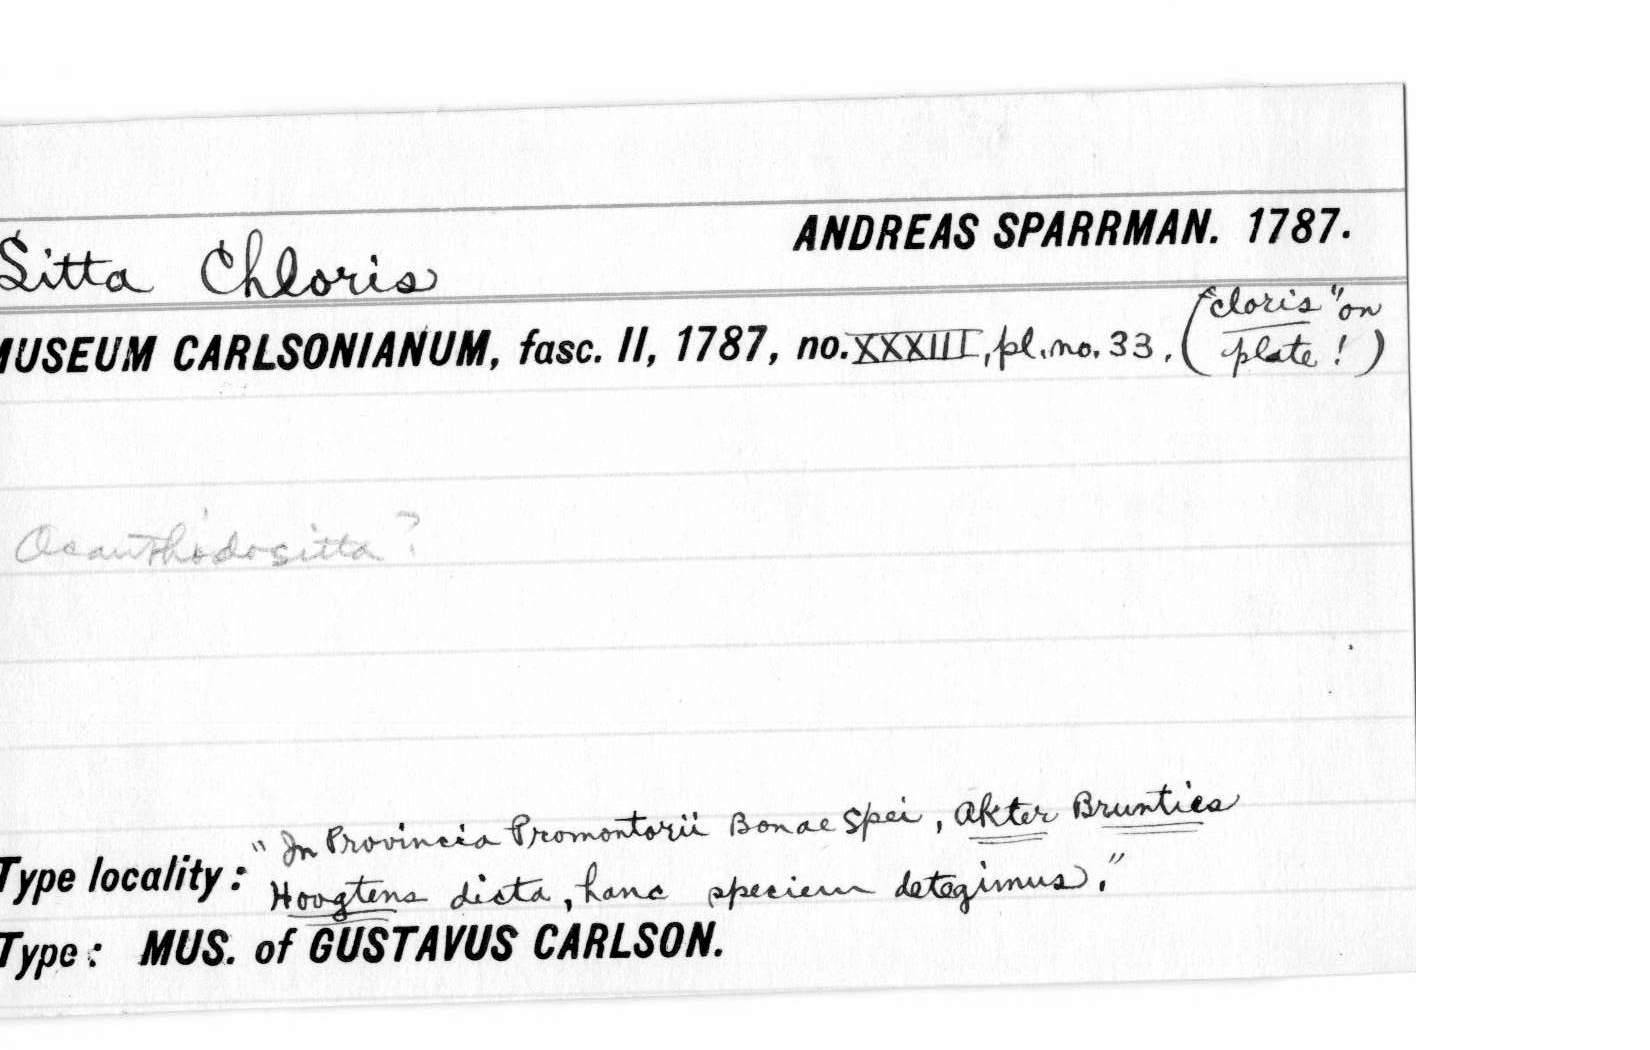 ANDREAS SPARRMAN. 1787.
Sitta Chloris
MUSEUM CARLSONIANUM, fasc. II, 1787, no. XXXIII, pl. no. 33. ("cloris" on
plate!)
Acanthidositta?
"In Provincia Promontorii Bonae Spei, Akter Brunties
Type locality: Hoogtens dicta, hanc speciem detegimus."
Type: MUS. of GUSTAVUS CARLSON.